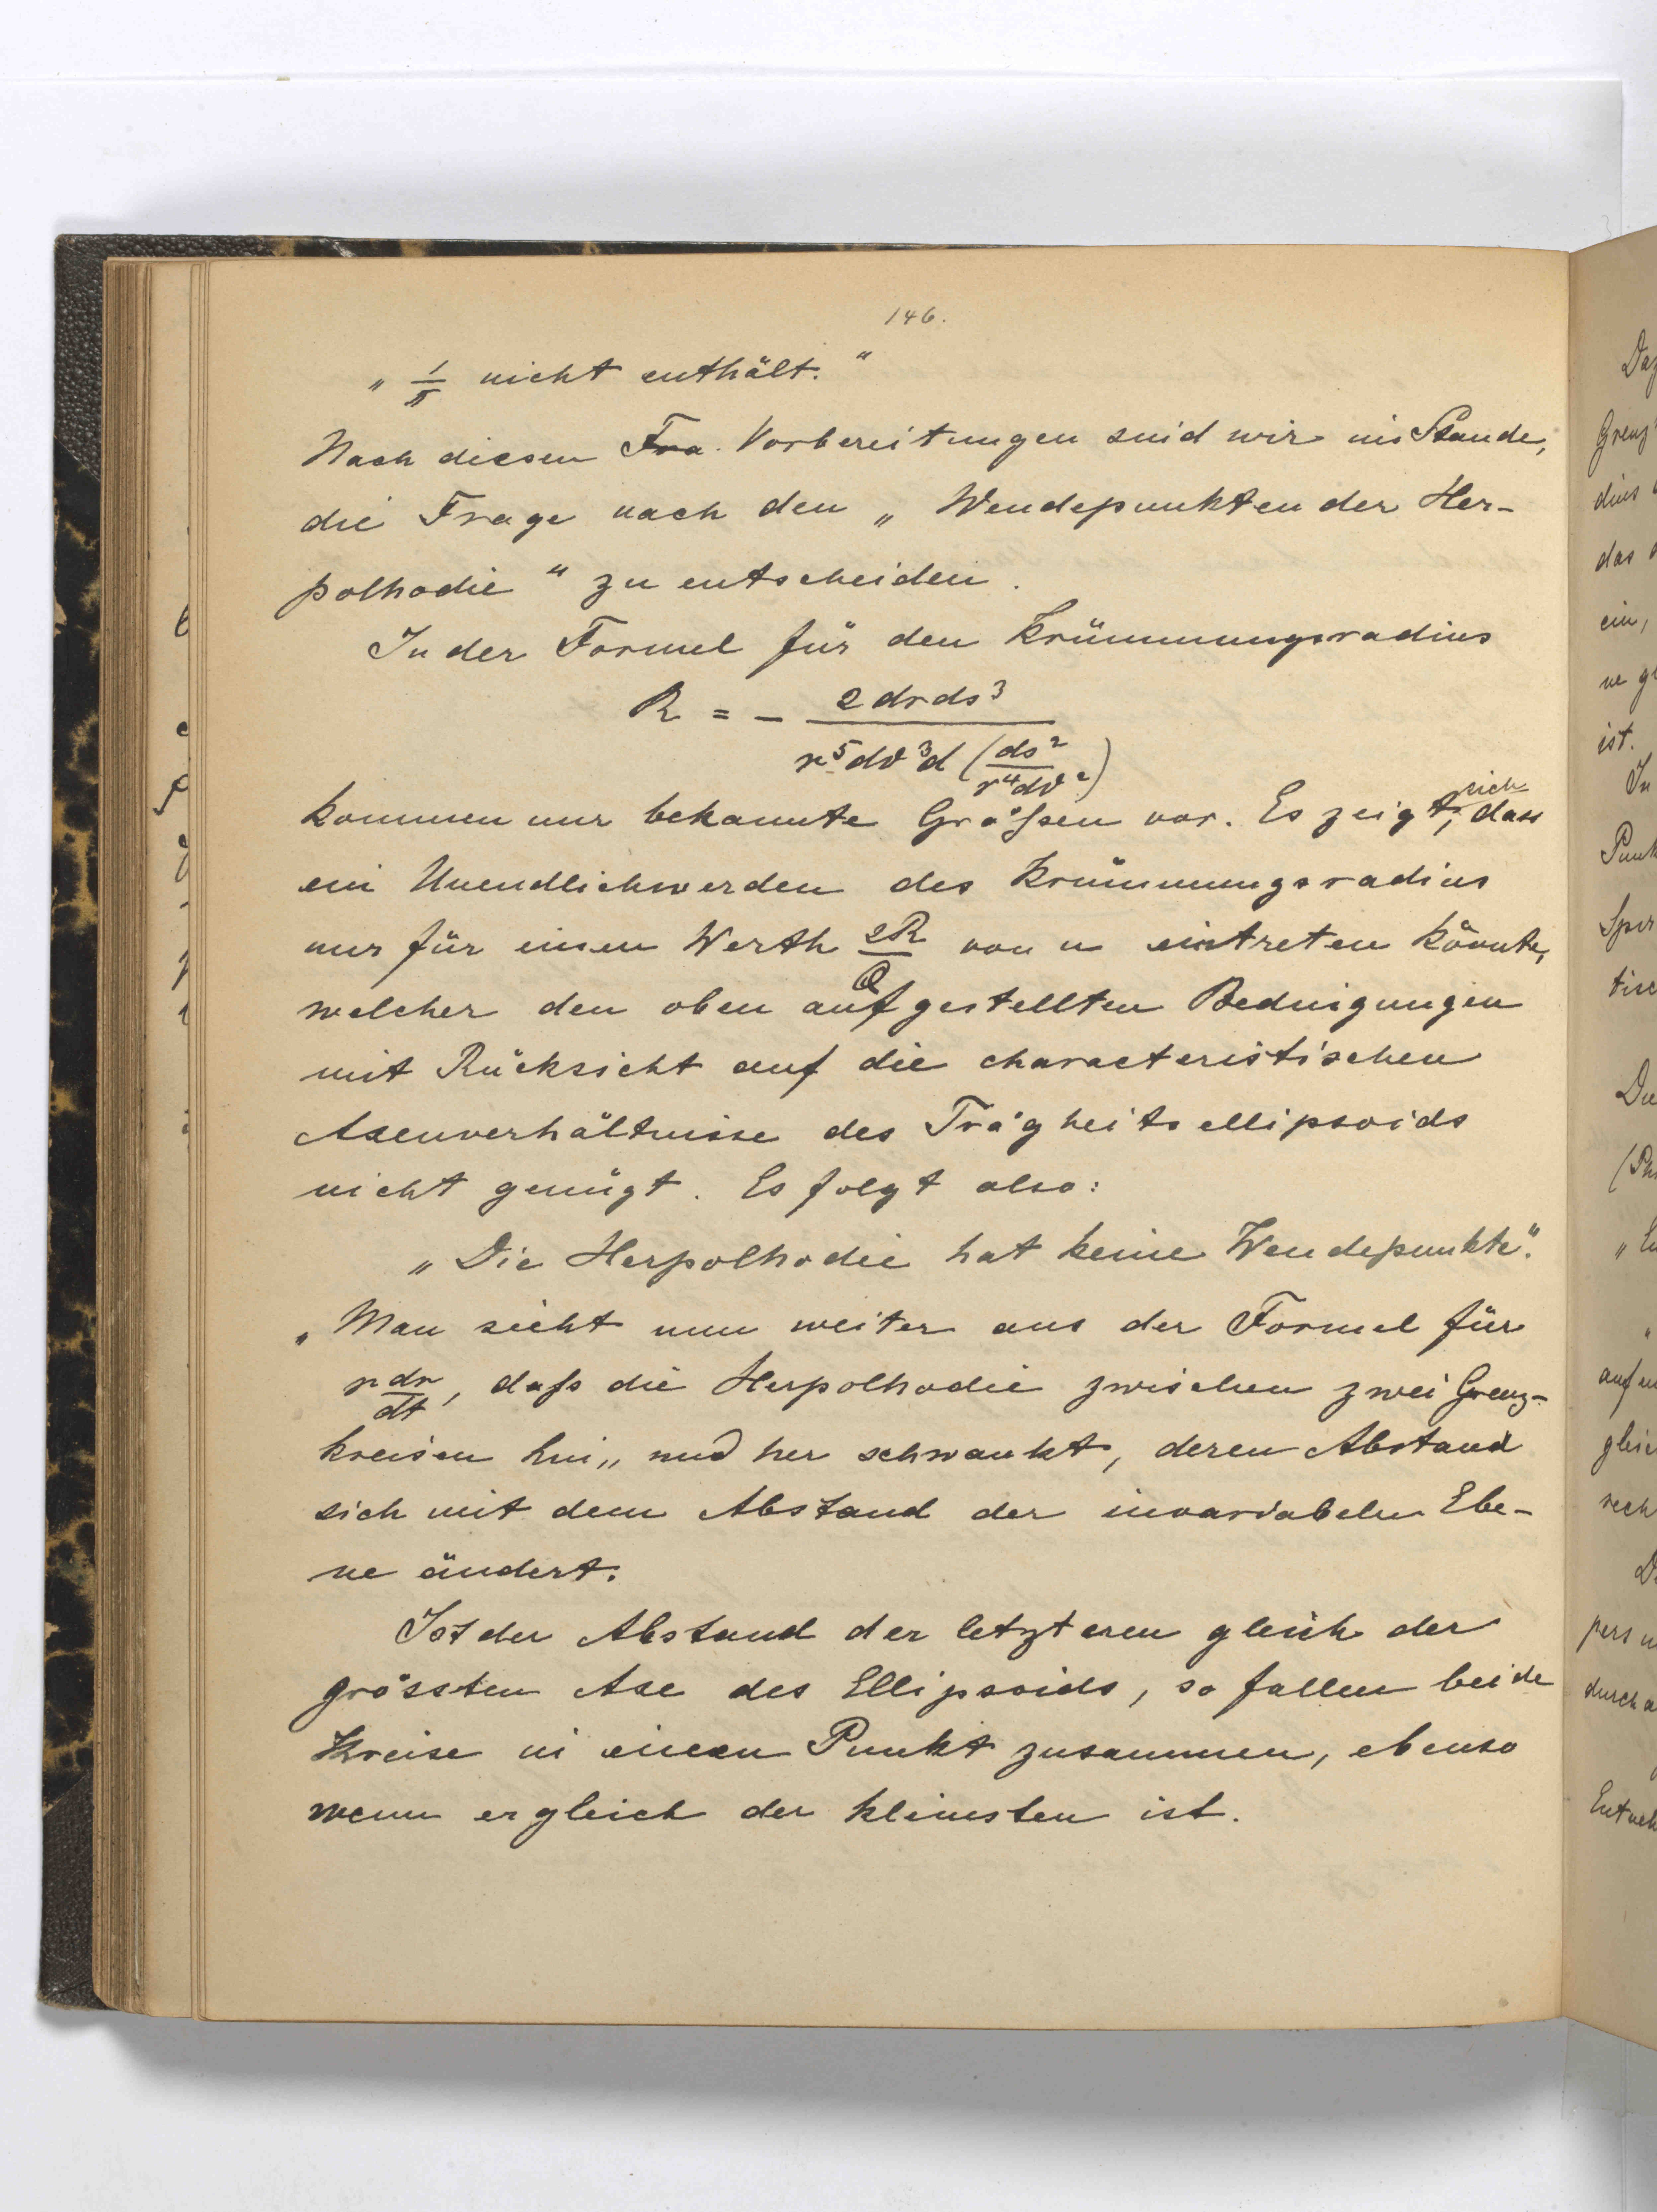 146.
„ 1/π nicht enthält. “
Nach diesen Fra. Vorbereitungen sind wir im Stande,
die Frage nach den „ Wendepunkten der Her-
polhodie “ zu entscheiden.
In der Formel für den Krümmungsradius
R = - 2drds³ / r⁵dϑ³d (ds²/r⁴dϑ²)
kommen nur bekannte Größen vor. Es zeigt sich, dass
ein Unendlichwerden des Krümmungsradius
nur für einen Werth 2R/Q von u eintreten könnte,
welcher den oben aufgestellten Bedingungen
mit Rücksicht auf die characteristischen
Axenverhältnisse des Trägheitsellipsoids
nicht genügt. Es folgt also:
„ Die Herpolhodie hat keine Wendepunkte“.
„ Man sieht nun weiter aus der Formel für
r dr/dt, daſs die Herpolhodie zwischen zwei Grenz-
kreisen hin„ und her schwankt, deren Abstand
sich mit dem Abstand der invariabelen Ebe-
ne ändert.
Ist der Abstand der letzteren gleich der
grössten Axe des Ellipsoids, so fallen beide
Kreise in einen Punkt zusammen, ebenso
wenn er gleich der kleinsten ist.